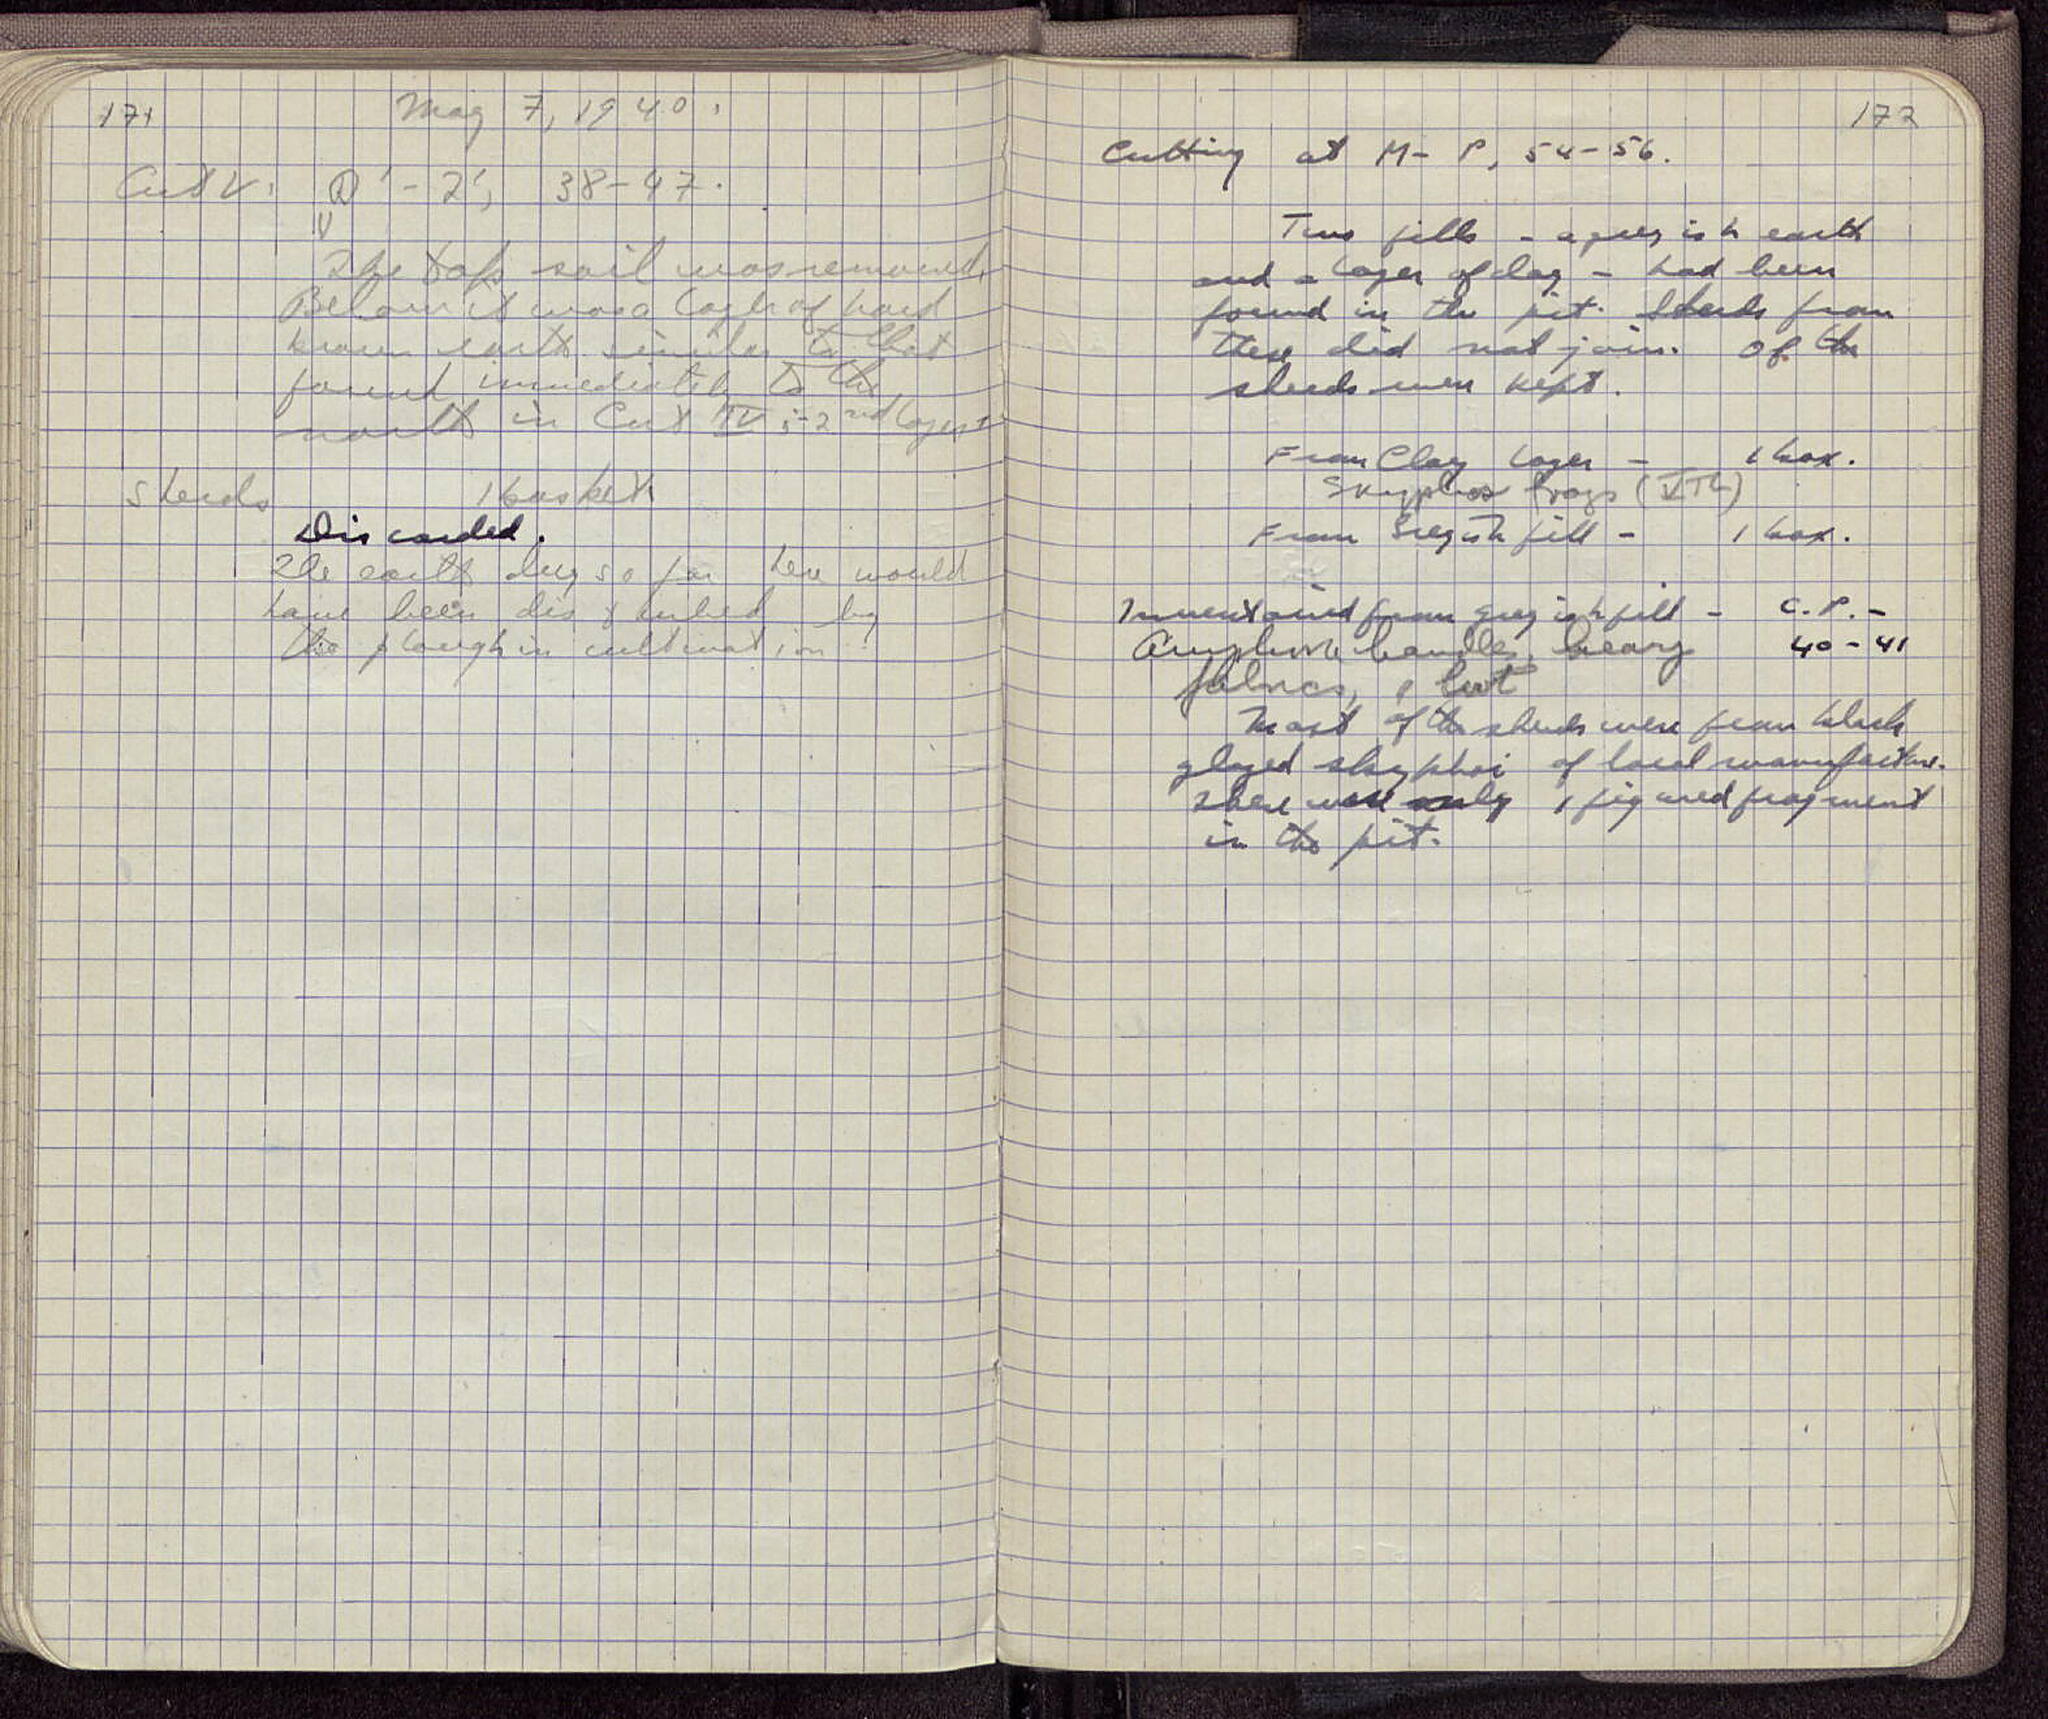 171
May 7, 1940.
Cut V: Q' - Z', 38-47.
IV
The top soil was removed.
Below it was a layer of hard
brown earth similar to that
found immediately to the
north in Cut IV; - 2nd layer.
Sherds 1 basket
Discarded.
The earth dug so far here would
have been disturbed by
the plough in cultivation.
172
Cutting at M - P, 54-56.
Two fills - a greyish earth
and a layer of clay - had been
found in the pit. Sherds from
these did not join. Of the
sherds were kept.
From Clay layer - 1 box.
Skyphos frags (VTh)
From Greyish fill - 1 box.
Inventoried from greyish fill - C.P.-
Amphora handle, heavy 40-41
fabrics, 1 foot
Most of the sherds were from black
glazed skyphoi of local manufacture.
There were only 1 figured fragment
in the pit.